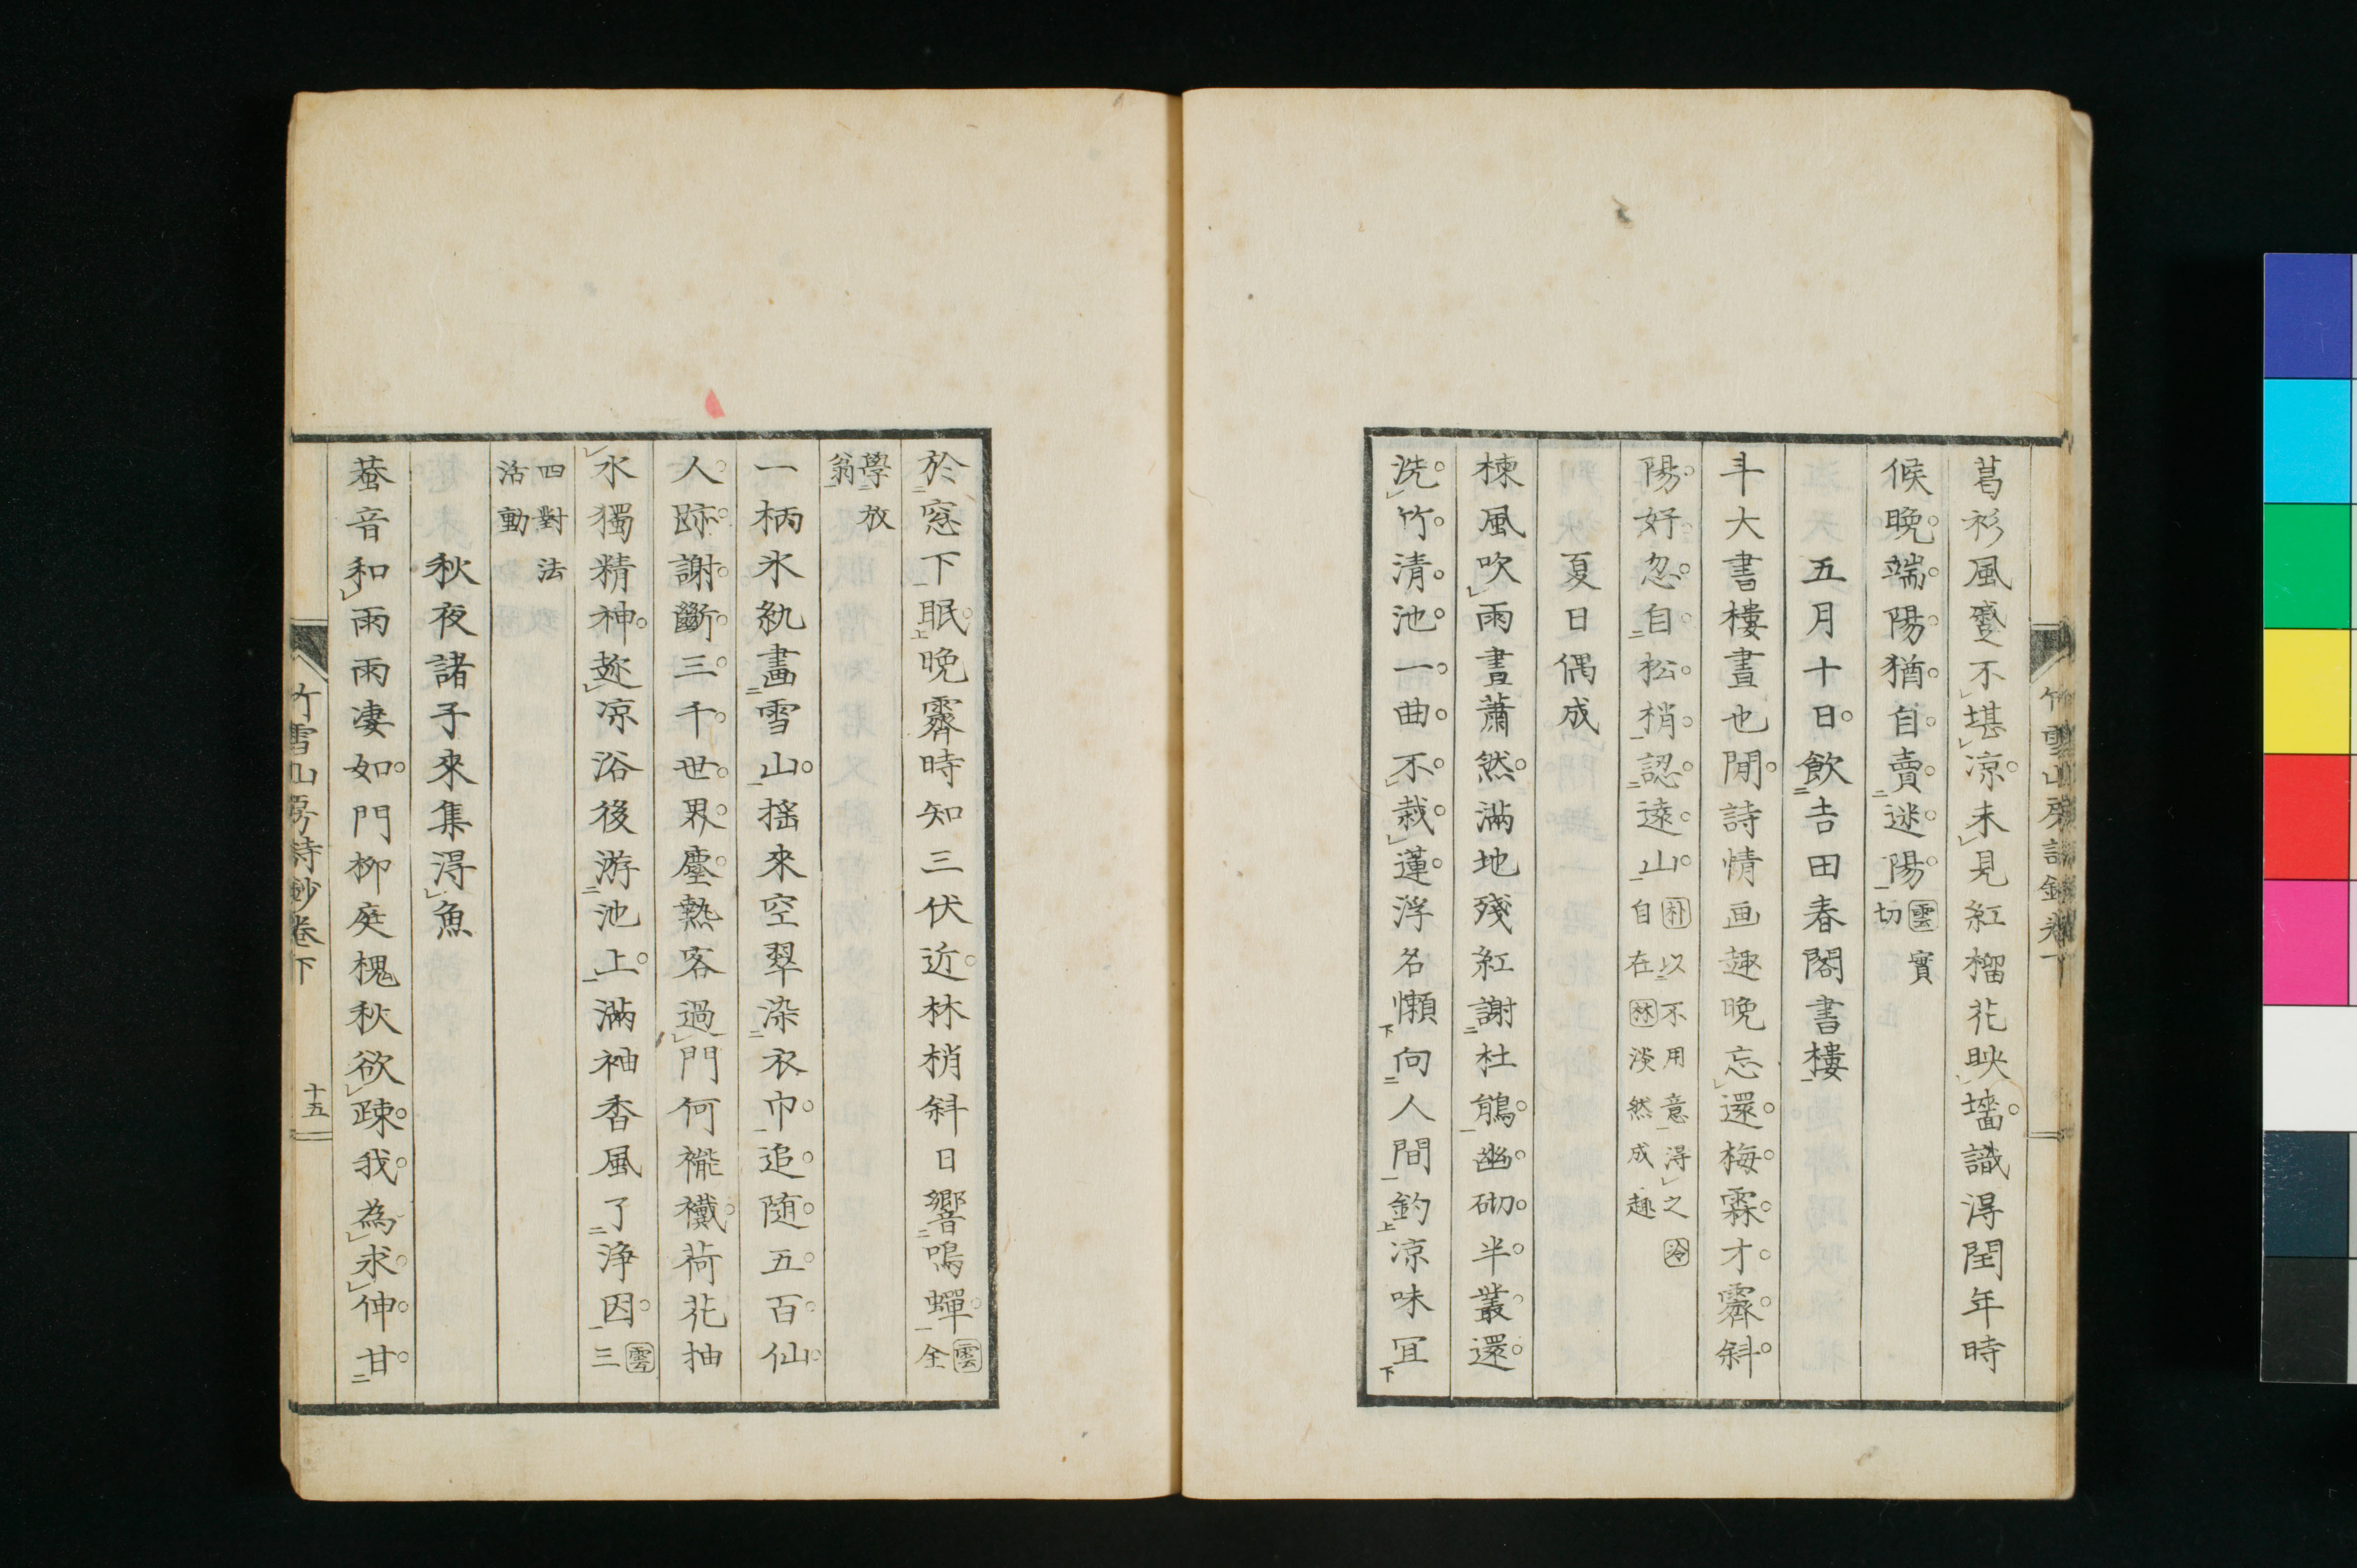 葛衫風蹙不堪凉未見紅榴花映墻識得閏年時
候晩端陽猶自賣迷陽雲實
切
五月十日飲吉田春閣書樓
斗大書樓晝也閒詩情画趣晩忘還梅霖才霽斜
陽好忽自松梢認遠山朴以不用意得之冷
自在林淡然成趣
夏日偶成
楝風吹雨晝蕭然滿地殘紅謝杜鵑幽砌半叢還
洗竹清池一曲不栽蓮浮名懶向人間釣凉味冝
竹雪山房詩鈔卷下
於窓下眠晩霽時知三伏近林梢斜日響鳴蟬雲
全
學放
翁
一柄氷紈畫雪山揺來空翠染衣巾追随五百仙
人跡謝斷三千世界塵熱客過門何襱襶荷花抽
水獨精神
凉浴後游池上滿袖香風了浄因雲
三
四對法
活動
秋夜諸子來集得魚
蛬音和雨雨凄如門柳庭槐秋欲踈我為求伸甘
竹雪山房詩鈔卷下
十五